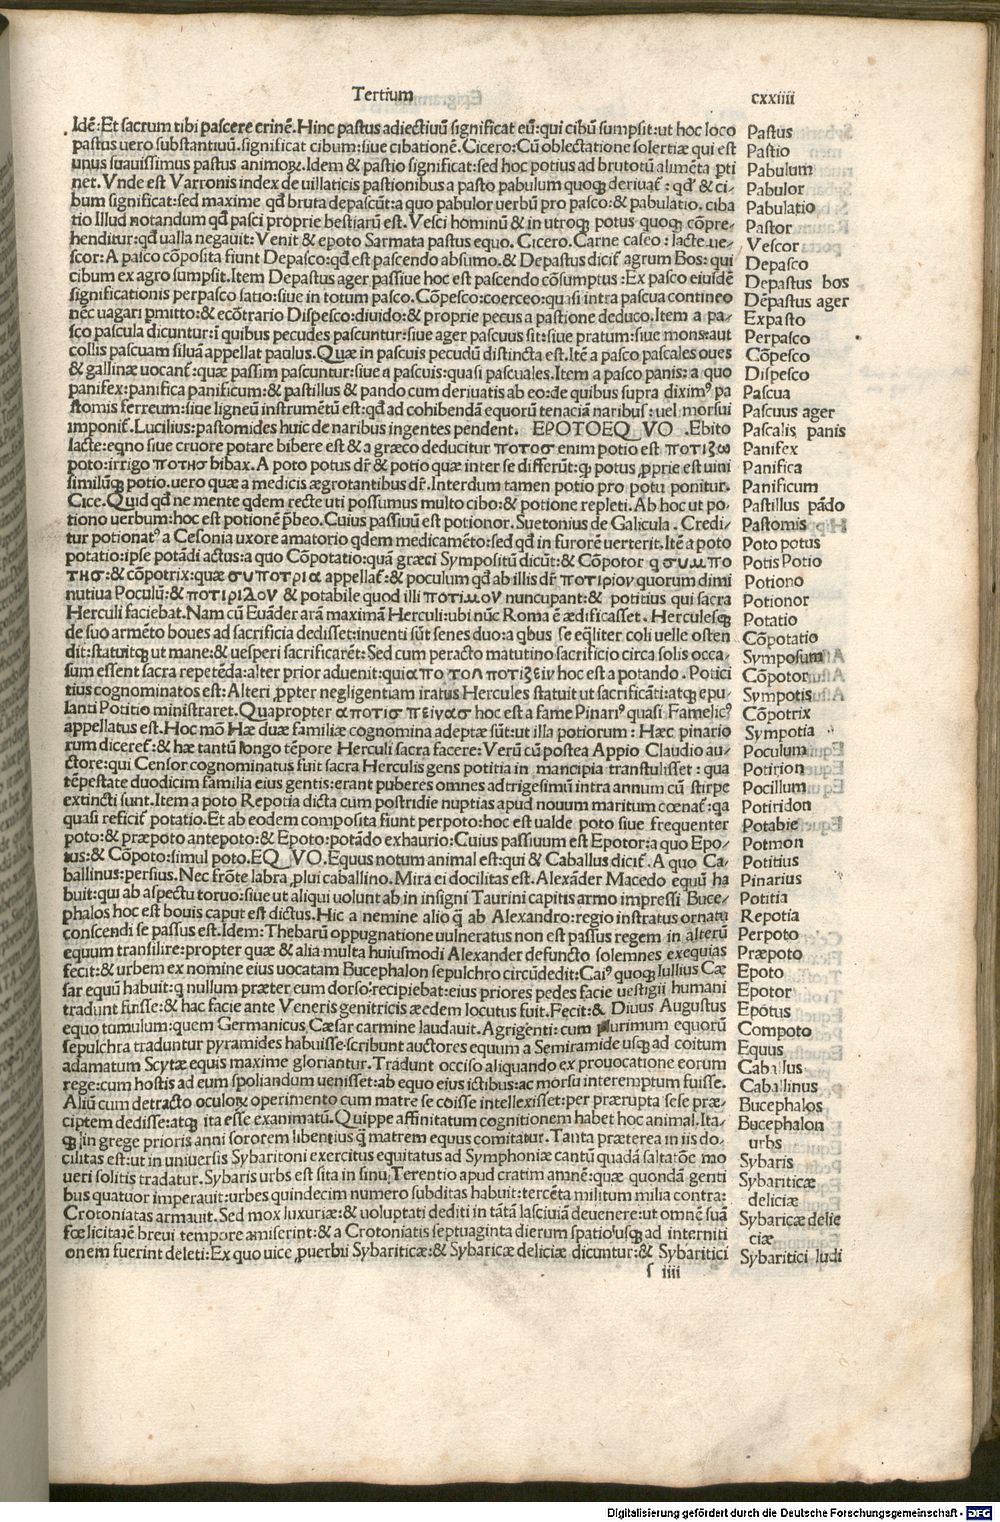 Tertium
cxxiiii
Idē:Et sacrum tibi pascere crinē.Hinc pastus adiectiuū significat eū:qui cibū sumpsit:ut hoc loco
pastus uero substantiuū.significat cibum:siue cibationē.Cicero:Cū oblectatione solertiæ qui est
unus suauissimus pastus animoꝝ.Idem & pastio significat:sed hoc potius ad brutoꝝ alimēta pti
net.Vnde est Varronis index de uillaticis pastionibus a pasto pabulum quoqꝫ deriuať:qď & ci-
bum significat:sed maxime qď bruta depascūt:a quo pabulor uerbū pro pasco:& pabulatio.ciba
tio Illud notandum qď pasci proprie bestiarū est.Vesci hominū & in utroqꝫ potus quoqꝫ cōpre-
henditur:qď ualla negauit:Venit & epoto Sarmata pastus equo.Cicero.Carne caseo:lacte ue-
scor:A pasco cōposita fiunt Depasco:qď est pascendo absumo.& Depastus diciť agrum Bos:qui
cibum ex agro sumpsit.Item Depastus ager passiue hoc est pascendo cōsumptus:Ex pasco eiusdē
significationis perpasco satio:siue in totum pasco.Cōpesco:coerceo:quasi intra pascua contineo
nec uagari pmitto:& ecōtrario Dispesco:diuido:& proprie pecus a pastione deduco.Item a pa-
sco pascula dicuntur:ī quibus pecudes pascuntur:siue ager pascuus sit:siue pratum:siue mons:aut
collis pascuam siluā appellat paulus.Quæ in pascuis pecudū distincta est.Itē a pasco pascales oues
& gallinæ uocanť:quæ passim pascuntur:siue a pascuis:quasi pascuales.Item a pasco panis:a quo
panifex:panifica panificum:& pastillus & pando cum deriuatis ab eo:de quibus supra diximꝰ pa
stomis ferreum:siue ligneū instrumētū est:qď ad cohibendā equorū tenaciā naribus:uel morsui
imponiť.Lucilius:pastomides huic de naribus ingentes pendent. EPOTO EQVO .Ebito
lacte:eqno siue cruore potare bibere est & a græco deducitur ποτοσ enim potio est ποτιζω
poto:irrigo ποτησ bibax.A poto potus dr̄ & potio quæ inter se differūt:q potus ꝓprie est uini
similiūqꝫ potio.uero quæ a medicis ægrotantibus dr̄.Interdum tamen potio pro potu ponitur.
Cice.Quid qď ne mente qdem recte uti possumus multo cibo:& potione repleti.Ab hoc ut po-
tiono uerbum:hoc est potionē p̄beo.Cuius passiuū est potionor.Suetonius de Galicula.Credi-
tur potionatꝰ a Cesonia uxore amatorio qdem medicamēto:sed qď in furorē uerterit.Itē a poto
potatio:ipse potādi actus:a quo Cōpotatio:quā græci Symposiū dicūt:& Cōpotor q συμπο
τησ:& cōpotrix:quæ συποτρια appellať:& poculum qď ab illis dr̄ ποτιριον quorum dimi
nutiua Poculū:& ποτιριδον & potabile quod illi ποτιμον nuncupant:& potitius qui sacra
Herculi faciebat.Nam cū Euāder arā maximā Herculi:ubi nūc Roma ē ædificasset.Herculesqꝫ
de suo armēto boues ad sacrificia dedisset:inuenti sūt senes duo:a qbus se eqliter coli uelle osten
dit:statuitqꝫ ut mane:& uesperi sacrificarēt:Sed cum peracto matutino sacrificio circa solis occa-
sum essent sacra repetēda:alter prior aduenit:qui απο τολ ποτιζειν hoc est a potando.Potici
tius cognominatos est:Alteri ꝓpter negligentiam iratus Hercules statuit ut sacrificāti:atqꝫ epu-
lanti Potitio ministraret.Quapropter αποτισ πεινασ hoc est a fame Pinariꝰ quasi Famelicꝰ
appellatus est.Hoc mō Hæ duæ familiæ cognomina adeptæ sūt:ut illa potiorum:Hæc pinario
rum dicereť:& hæ tantū longo tēpore Herculi sacra facere:Verū cū postea Appio Claudio au-
ctore:qui Censor cognominatus fuit sacra Herculis gens potitia in mancipia transtulisset:qua
tēpestate duodicim familia eius gentis:erant puberes omnes ad trigesimū intra annum cū stirpe
extincti sunt.Item a poto Repotia dicta cum postridie nuptias apud nouum maritum cœnať:qa
quasi reficiť potatio.Et ab eodem composita fiunt perpoto:hoc est ualde poto siue frequenter
poto:& præpoto antepoto:& Epoto:potādo exhaurio:Cuius passiuum est Epotor:a quo Epo-
tus:& Cōpoto:simul poto.EQVO.Equus notum animal est:qui & Caballus diciť.A quo Ca-
ballinus:persius.Nec frōte labra ꝓlui caballino.Mira ei docilitas est.Alexāder Macedo equū ha
buit:qui ab aspectu toruo:siue ut aliqui uolunt ab in insigni Taurini capitis armo impressi Buce-
phalos hoc est bouis caput est dictus.Hic a nemine alio q̄ ab Alexandro:regio instratus ornatu
conscendi se passus est.Idem:Thebarū oppugnatione uulneratus non est passus regem in alterū
equum transilire:propter quæ & alia multa huiusmodi Alexander defuncto solemnes exequias
fecit:& urbem ex nomine eius uocatam Bucephalon sepulchro circūdedit:Caiꝰ quoqꝫ Iullius Cæ
sar equū habuit:q nullum præter eum dorso:recipiebat:eius priores pedes facie uestigii humani
tradunt fuisse:& hac facie ante Veneris genitricis æedem locutus fuit.Fecit:& Diuus Augustus
equo tumulum:quem Germanicus Cæsar carmine laudauit.Agrigenti:cum plurimum equorū
sepulchra traduntur pyramides habuisse.scribunt auctores equum a Semiramide usqꝫ ad coitum
adamatum Scytæ equis maxime gloriantur.Tradunt occiso aliquando ex prouocatione eorum
rege:cum hostis ad eum spoliandum uenisset:ab equo eius ictibus:ac morsu interemptum fuisse.
Aliū cum detracto oculoꝝ operimento cum matre se coisse intellexisset:per prærupta sese præ-
ciptem dedisse:atqꝫ ita esse exanimatū.Quippe affinitatum cognitionem habet hoc animal.Ita-
qꝫ in grege prioris anni sororem libentius q̄ matrem equus comitatur.Tanta præterea in iis do-
cilitas est:ut in uniuersis Sybaritoni exercitus equitatus ad Symphoniæ cantū quadā saltatōe mo
ueri solitis tradatur.Sybaris urbs est sita in sinu Terentio apud cratim amnē:quæ quondā genti
bus quatuor imperauit:urbes quindecim numero subditas habuit:tercēta militum milia contra:
Crotoniatas armauit.Sed mox luxuriæ:& uoluptati dediti in tātā lasciuiā deuenere:ut omnē suā
fœlicitatē breui tempore amiserint:& a Crotoniatis septuaginta dierum spatio usqꝫ ad interniti
onem fuerint deleti:Ex quo uice ꝓuerbii Sybariticæ:& Sybaricæ deliciæ dicuntur:& Sybaritici
s iiii
Pastus
Pastio
Pabulum
Pabulor
Pabulatio
Pastor
Vescor
Depasco
Depastus bos
Dēpastus ager
Expasto
Perpasco
Cōpesco
Dispesco
Pascua
Pascuus ager
Pascalis panis
Panifex
Panifica
Panificum
Pastillus pādo
Pastomis
Poto potus
Potis Potio
Potiono
Potionor
Potatio
Cōpotatio
Symposum
Cōpotor
Sympotis
Cōpotrix
Sympotia
Poculum
Potirion
Pocillum
Potiridon
Potabie
Potmon
Potitius
Pinarius
Potitia
Repotia
Perpoto
Præpoto
Epoto
Epotor
Epotus
Compoto
Equus
Caballus
Caballinus
Bucephalos
Bucephalon
urbs
Sybaris
Sybariticæ
deliciæ
Sybaricæ delie
ciæ
Sybaritici ludi
Digitalisierung gefördert durch die Deutsche Forschungsgemeinschaft - DFG